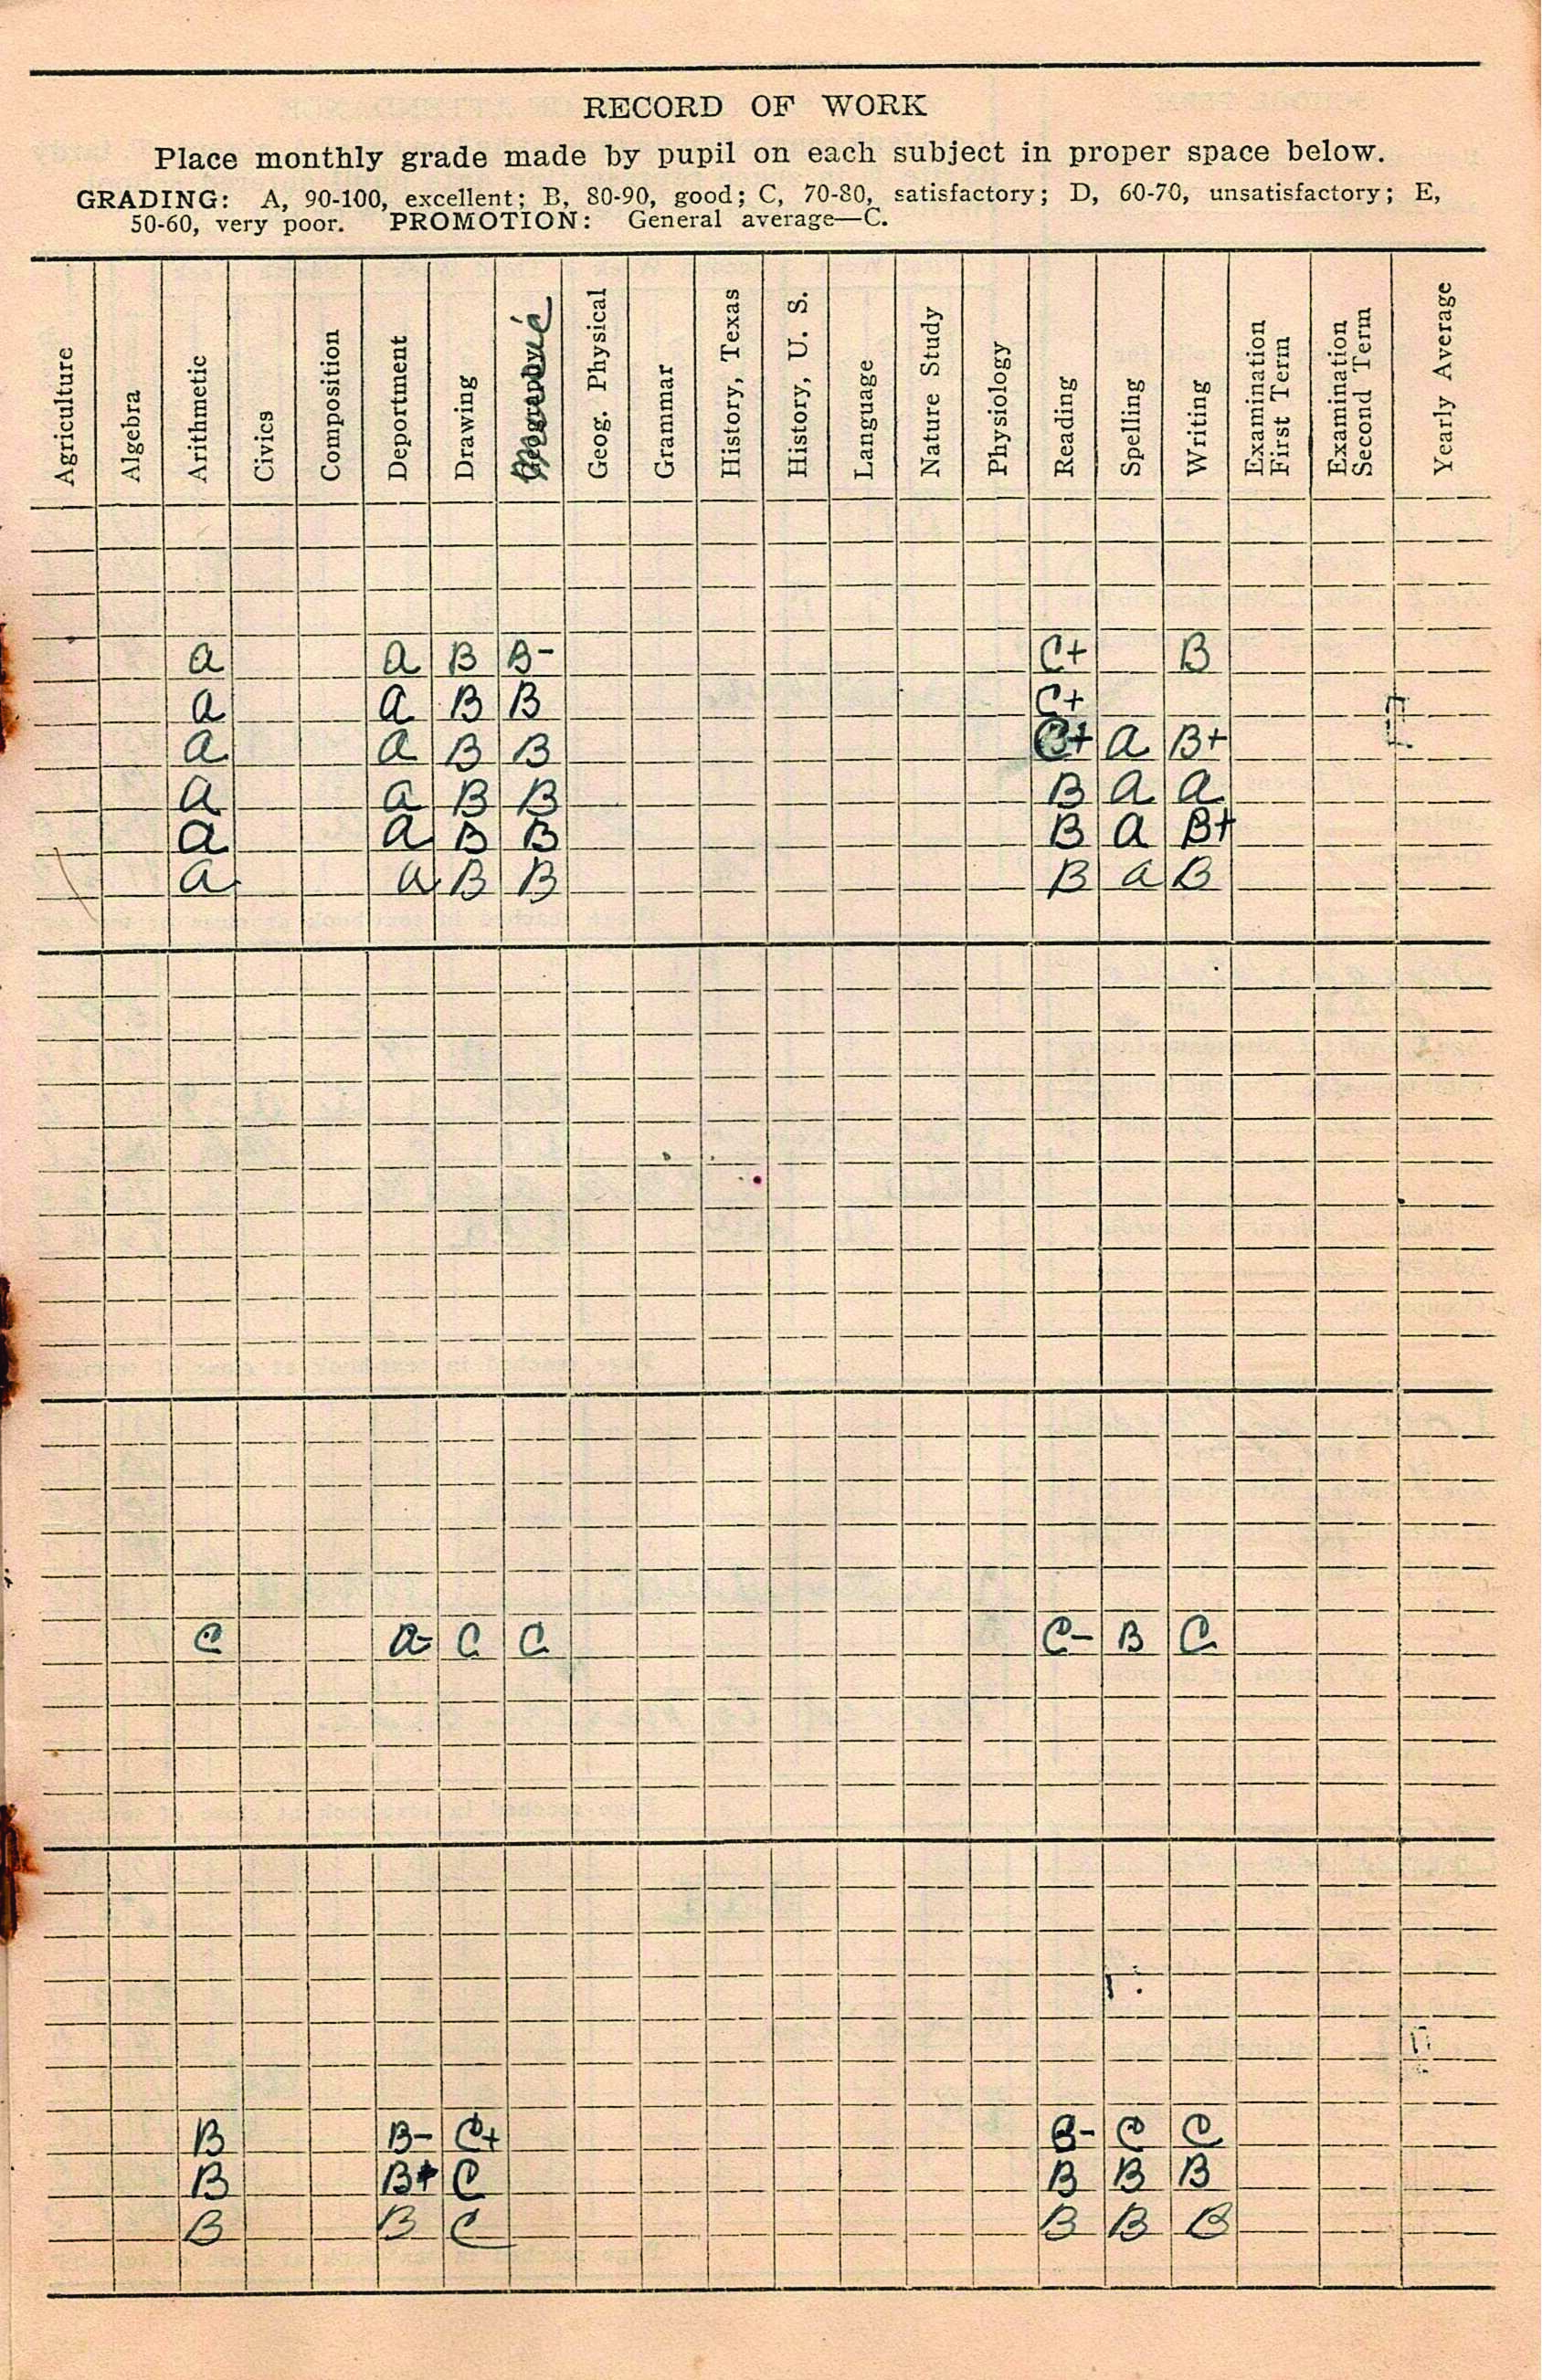 RECORD OF WORK
Place monthly grade made by pupil on each subject in proper space below.
GRADING: A, 90-100, excellent; B, 80-90, good; C, 70-80, satisfactory; D, 60-70, unsatisfactory; E,
50-60, very poor. PROMOTION: General average—C.
Agriculture
Algebra
Arithmetic
Civics
Composition
Deportment
Drawing
Geog. Physical
Grammar
History, Texas
History, U. S.
Language
Nature Study
Physiology
Reading
Spelling
Writing
Examination
First Term
Examination
Second Term
Yearly Average
A A B B- C+ B
A A B B C+
A A B B C+ A B+
A A B B B A A
A A B B B A B+
A A B B B A B
C A- C C C- B C
B B- C+ B- C C
B B+ C B B B
B B C B B B